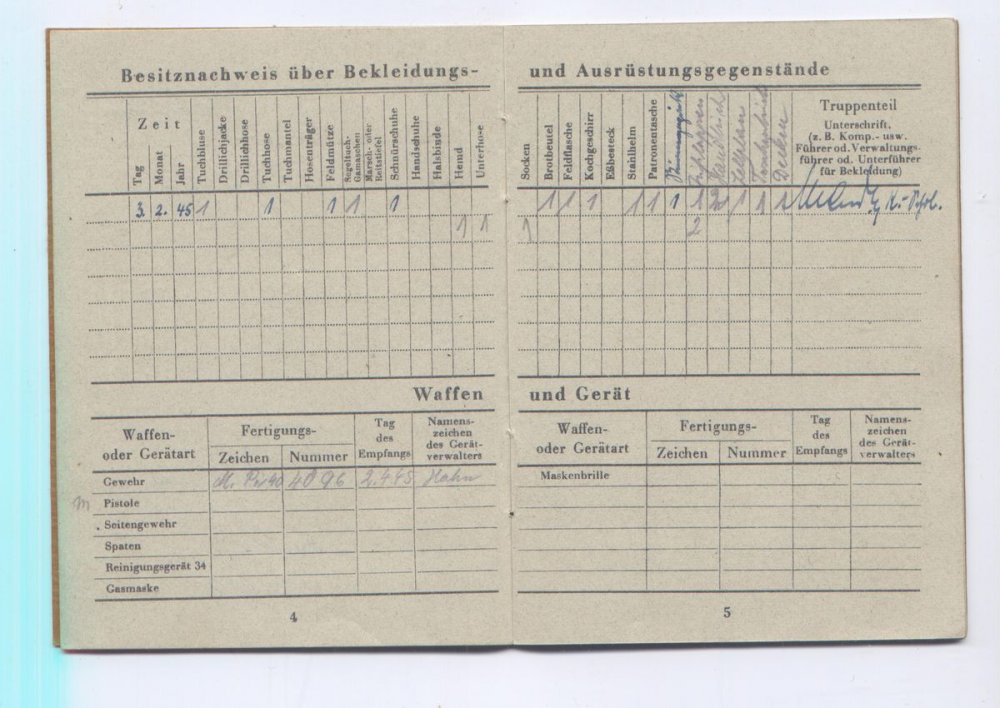 Besitznachweis über Bekleidungs-
Zeit
Tag
Monat
Jahr
Tuchbluse
Drillichjacke
Drillichhose
Tuchhose
Tuchmantel
Hosenträger
Feldmütze
Segeltuch-
Gamaschen
Marsch- oder
Reitstiefel
Schnürschuhe
Handschuhe
Halsbinde
Hemd
Unterhose
3. 2. 45 1 1 1 1 1
1 1
Waffen
Waffen-
oder Gerätart
Fertigungs-
Zeichen Nummer
Tag
des
Empfangs
Namens-
zeichen
des Gerät-
verwalters
Gewehr 4096 2.4.45 Hahn
Pistole
Seitengewehr
Spaten
Reinigungsgerät 34
Gasmaske
4
und Ausrüstungsgegenstände
Socken
Brotbeutel
Feldflasche
Kochgeschirr
Eßbesteck
Stahlhelm
Patronentasche
Decken
Truppenteil
Unterschrift,
(z. B. Komp.- usw.
Führer od. Verwaltungs-
führer od. Unterführer
für Bekleidung)
1 1 1 1 1 1 1 2 1
1 2
und Gerät
Waffen-
oder Gerätart
Fertigungs-
Zeichen Nummer
Tag
des
Empfangs
Namens-
zeichen
des Gerät-
verwalters
Maskenbrille
5